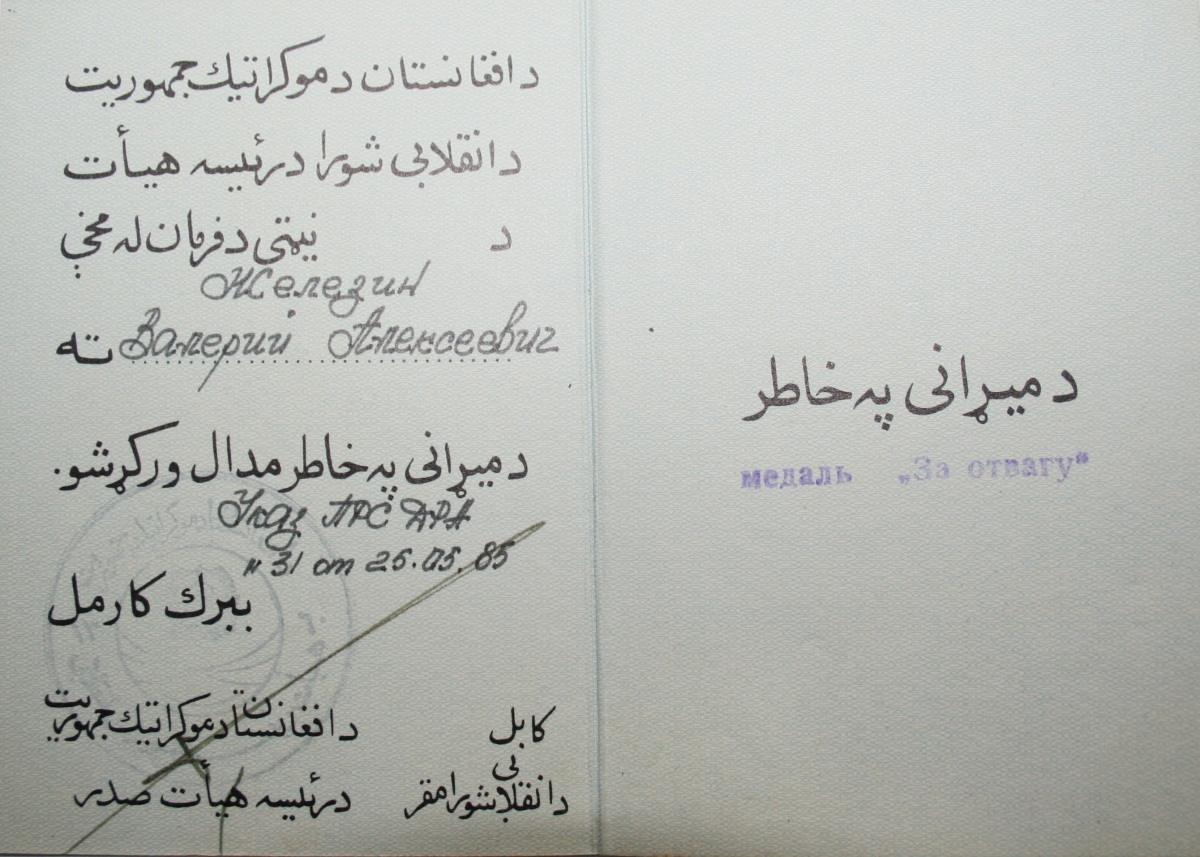 د افغانستان دموکراتيك جمهوريت
د انقلابی شورا د رئيسه هيأت
د نيټې د فرمان له مخې
Железин
Валерий Алексеевич ته
د ميړانی په خاطر مدال ورکړ شو.
Указ ПРС ДРА
№ 31 от 25.05.85
ببرك کارمل
د افغانستان دموکراتيك جمهوريت
د رئيسه هيأت صدر
کابل
د انقلابی شورا مقر
د ميړانی په خاطر
медаль „За отвагу"